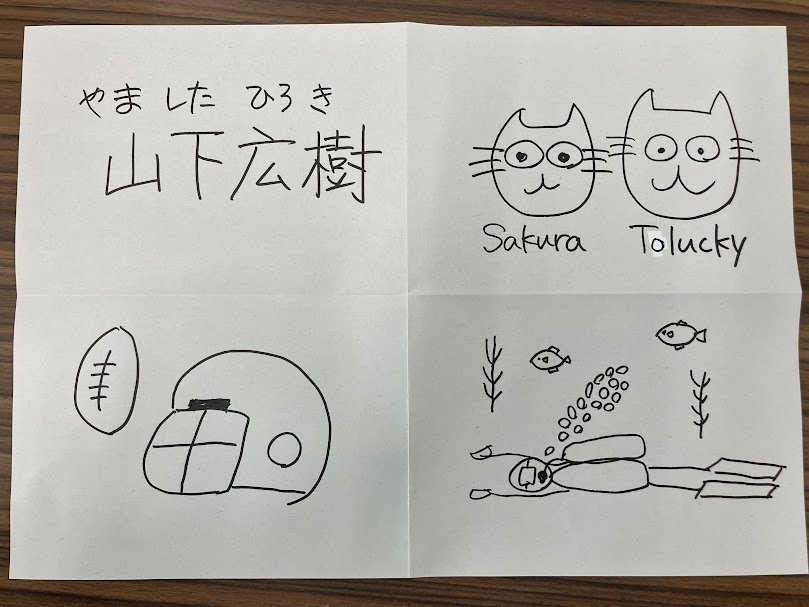 やました ひろき
山下広樹
Sakura Tolucky